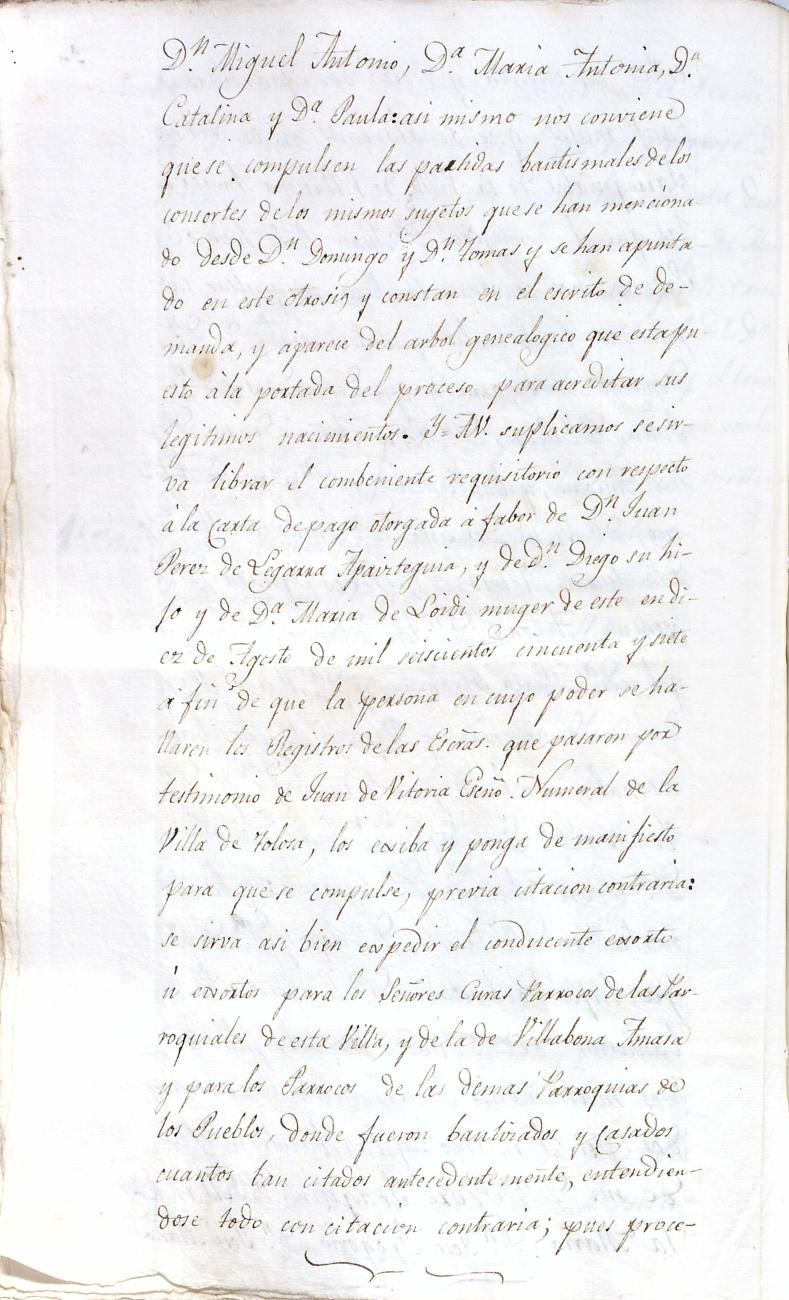 Dn. Miguel Antonio, Da. Maria Antonia, Da.
Catalina y Da. Paula: asi mismo nos conviene
que se compulsen las partidas bautismales de los
consortes de los mismos sugetos que se han menciona-
do desde Dn. Domingo y Dn. Tomas y se han apunta-
do en este otrosi, y constan en el escrito de de-
manda, y aparece del arbol genealogico que esta pu
esto à la portada del proceso para acreditar sus
legitimos nacimientos. Y= AV. suplicamos se sir-
va librar el combeniente requisitorio con respecto
à la Carta de pago otorgada à fabor de Dn. Juan
Perez de Legarra Apaizteguia, y de dn. Diego su hi-
jo y de Da. Maria de Loidi muger de este en di-
ez de Agosto de mil seiscientos cincuenta y siete
à fin de que la persona en cuyo poder se ha-
llaren los Registros de las Escras. que pasaron por
testimonio de Juan de Vitoria Escño. Numeral de la
Villa de Tolosa, los exsiba y ponga de manifiesto
para que se compulse, previa citacion contraria:
se sirva asi bien expedir el conducente exorto
ù exortos para los Señores Curas Parrocos de las Par-
roquiales de esta Villa, y de la de Villabona Amasa
y para los Parrocos de las demas Parroquias de
los Pueblos, donde fueron bautizados y Casados
cuantos ban citados antecedentemente, entendien-
dose todo con citacion contraria; pues proce-